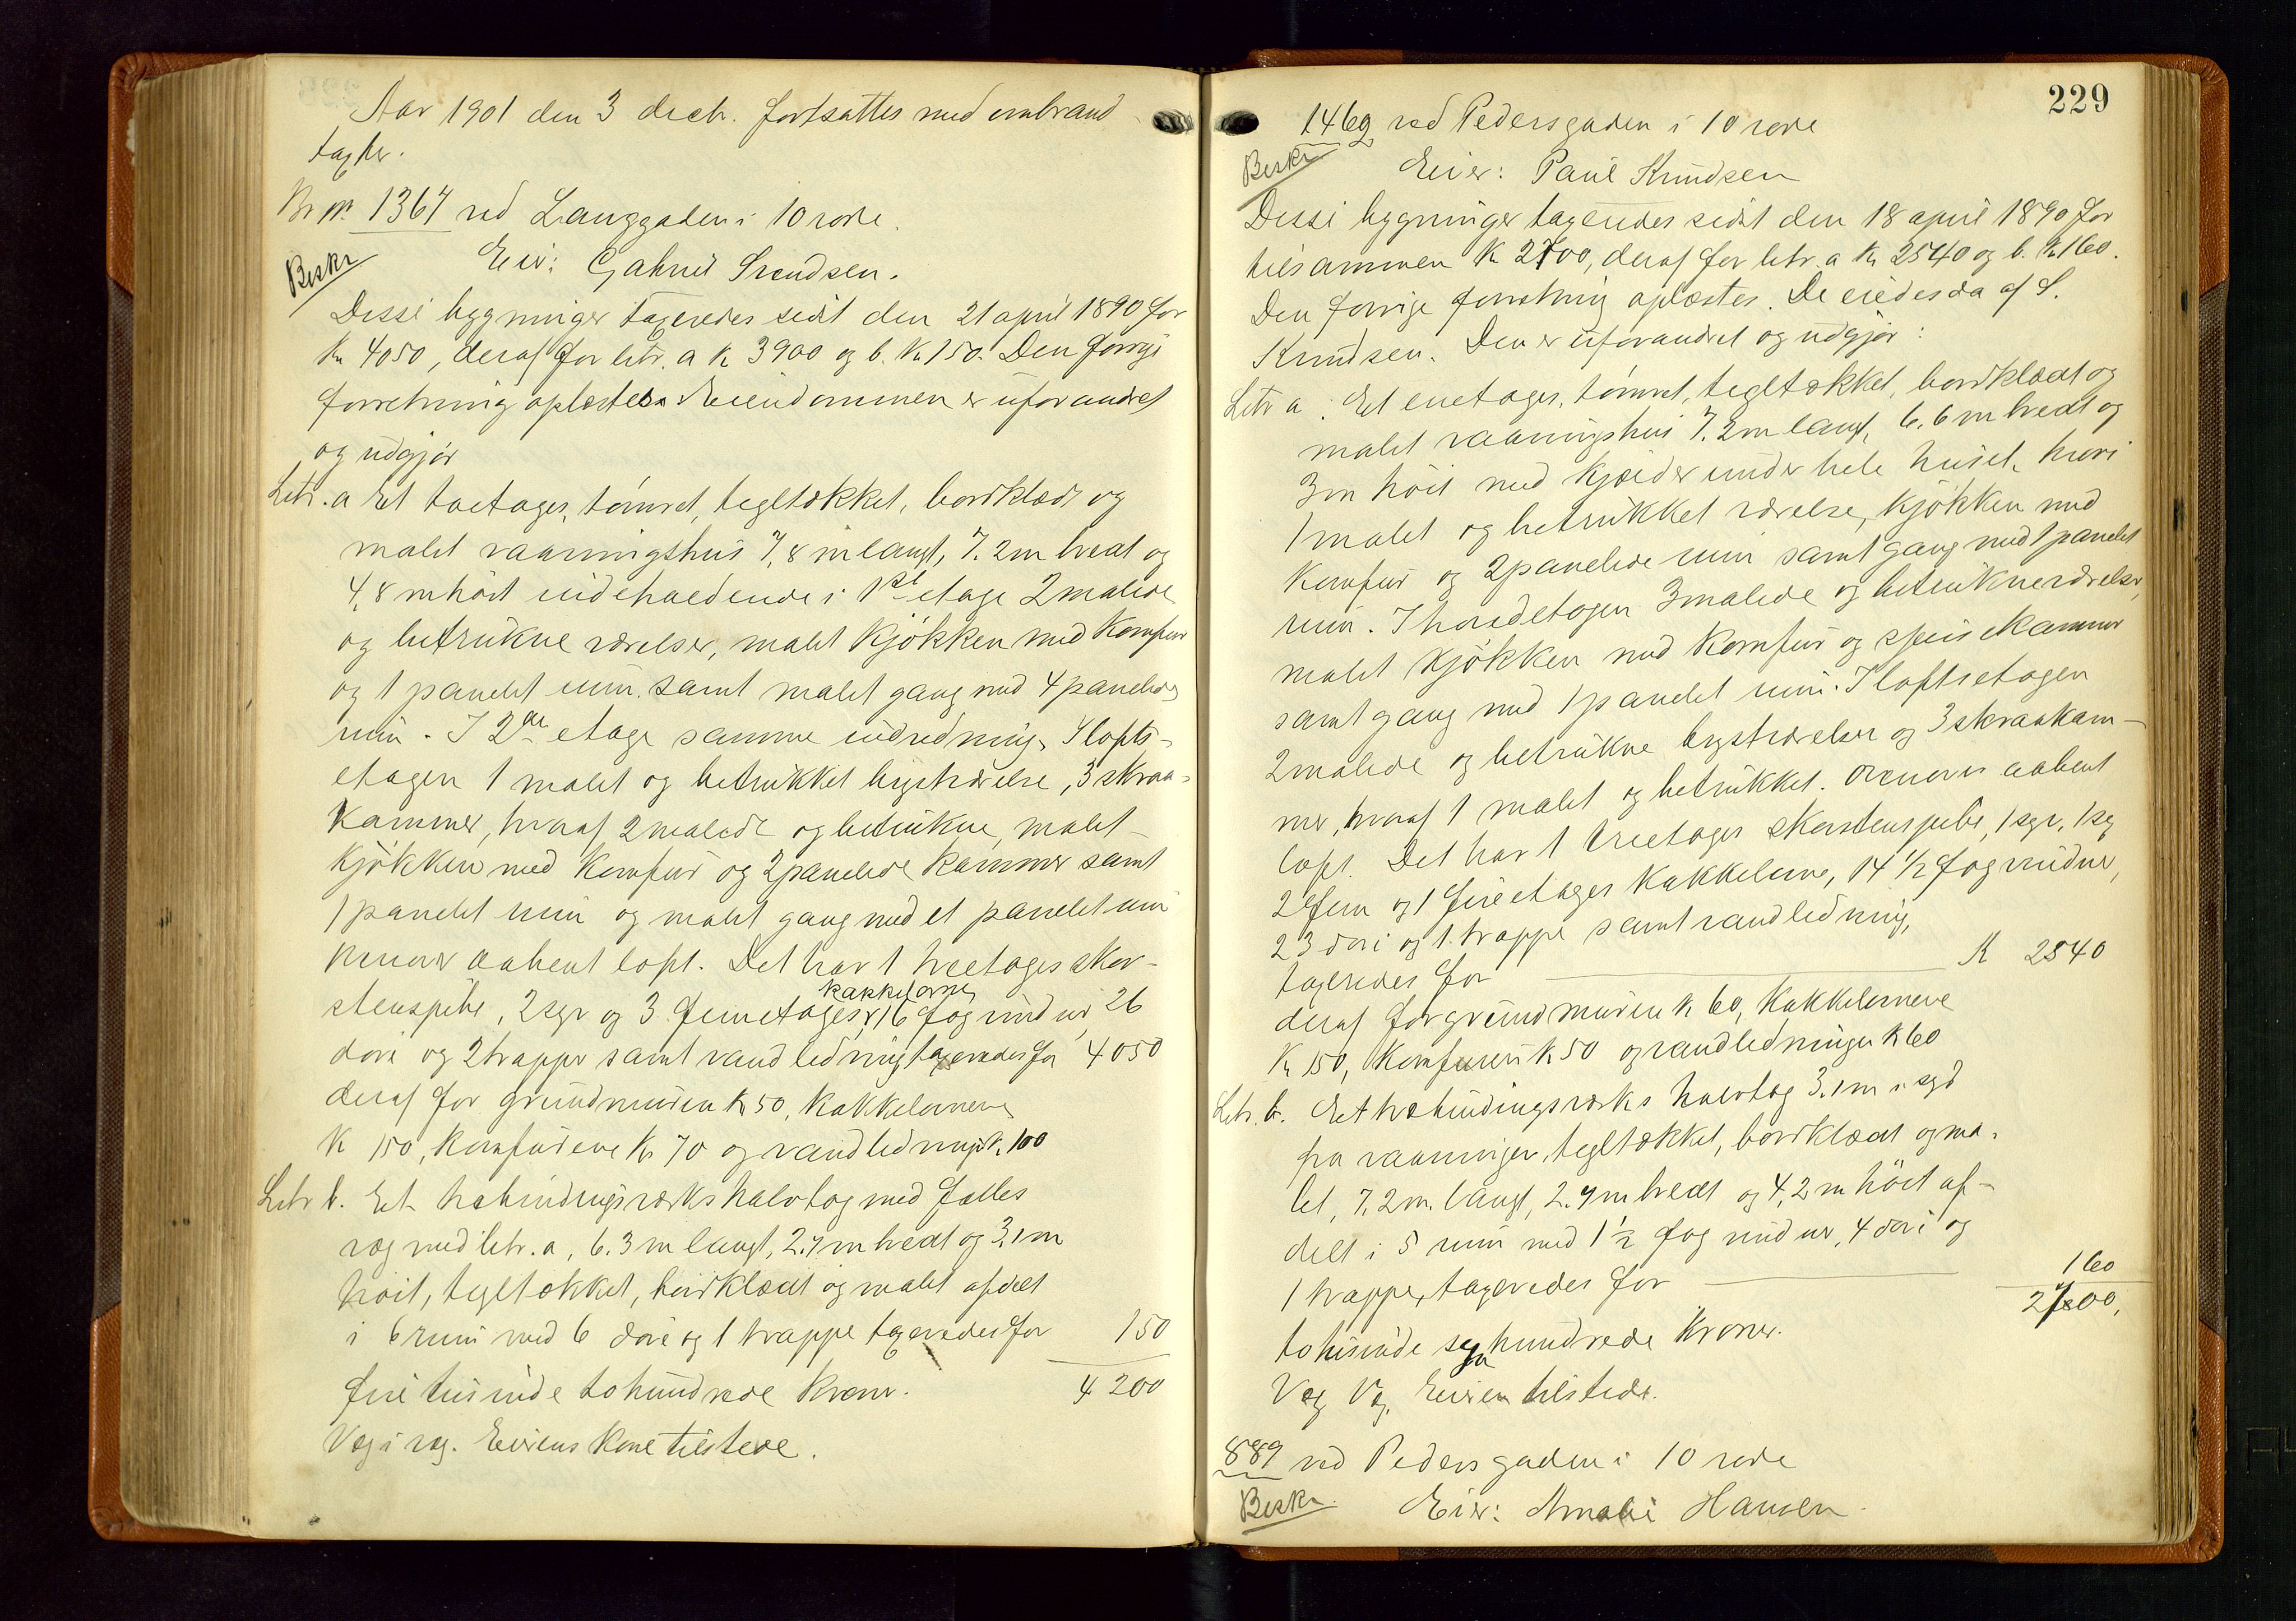 Aar 1901 den 3 decb. fortsattes med ombrand
taxter.
Br nr. 1364 ved Langgaden i 10 rode.
Beskr
Eier: Gabriel Svendsen.
Disse bygninger taxeredes sidst den 21 april 1890 for
Kr 4050, deraf for litr. a Kr 3900 og b. Kr 150. Den forrige
forretning oplæstes. Eiendommen er uforandret
og udgjør
Litr. a Et toetages, tømret, tegltækket, bordklædt og
malet vaaningshus 7,8 m langt, 7.2 m bredt og
4,8 m höit indeholdende i 1ste etage 2 malede
og betrukne værelser, malet kjökken med komfur
og 1 panelet rum samt malet gang med 4 panelede
rum. I 2den etage samme indredning. I lofts-
etagen 1 malet og betrukket kvistværelse, 3 skraa-
kammer, hvoraf 2 malede og betrukne, malet
kjökken med komfur og 2 panelede kammer samt
1 panelet rum og malet gang med et panelet rum
hvorover aabent loft. Det har 1 treetages skor-
stenspibe, 2 sgr og 3 femetages kakkelovne, 16 fag vinduer, 26
döre og 2 trapper samt vandledning taxeredes for 4050
deraf for grundmuren Kr 50, kakkelovnene
Kr 150, komfurene Kr 70 og vandledning Kr. 100
Litr b. Et trebindingsværks halvtag med fælles
væg med litr. a, 6.3 m langt, 2.7 m bredt og 3,1 m
höit, tegltækket, bordklædt og malet afdelt
i 6 rum med 6 döre og 1 trappe taxeredes for 150
fire tusinde tohundrede kroner. 4200
Væg i væg. Eierens kone tilstede.
229
1469 ved Pedersgaden i 10 rode
Beskr
Eier: Paul Knudsen
Disse bygninger taxeredes sidst den 18 april 1890 for
tilsammen Kr 2700, deraf for litr. a Kr 2540 og b. Kr 160.
Den forrige forretning oplæstes. De eiedes da af S.
Knudsen. Den er uforandret og udgjør:
Litr a. Et enetages, tömret, tegltækket, bordklædt og
malet vaaningshus 7.2 m langt, 6.6 m bredt og
3 m höit med kjælder under hele huset, hvori
1 malet og betrukket værelse, kjökken med
komfur og 2 panelede rum samt gang med 1 panelet
rum. I hovedetagen 3 malede og betrukne værelser,
malet kjökken med komfur og spisekammer
samt gang med 1 panelet rum. I loftsetagen
2 malede og betrukne kvistværelser og 3 skraakam-
mer, hvoraf 1 malet og betrukket. Ovenover aabent
loft. Det har 1 treetages skorstenspibe, 1 sgr, 1 sex
2 fem og 1 fireetages kakkelovne, 14 1/2 fag vinduer,
23 döre og 1 trappe samt vandledning,
taxeredes for Kr 2540
deraf for grundmuren Kr 60, kakkelovnene
Kr 150, komfurene Kr 50 og vandledningen Kr 60
Litr. b. Et trebindingsværks halvtag 3.1 m i syd
fra vaaningen, tegltækket, bordklædt og ma-
let, 7,2 m. langt, 2.7 m bredt og 4,2 m höit af-
delt i 5 rum med 1 1/2 fag vinduer, 4 döre og
1 trappe, taxeredes for 160
2700,
totusinde syv hundrede kroner.
Væg i væg. Eieren tilstede.
889 ved Pedersgaden i 10 rode
Beskr.
Eier: Amalie Hansen